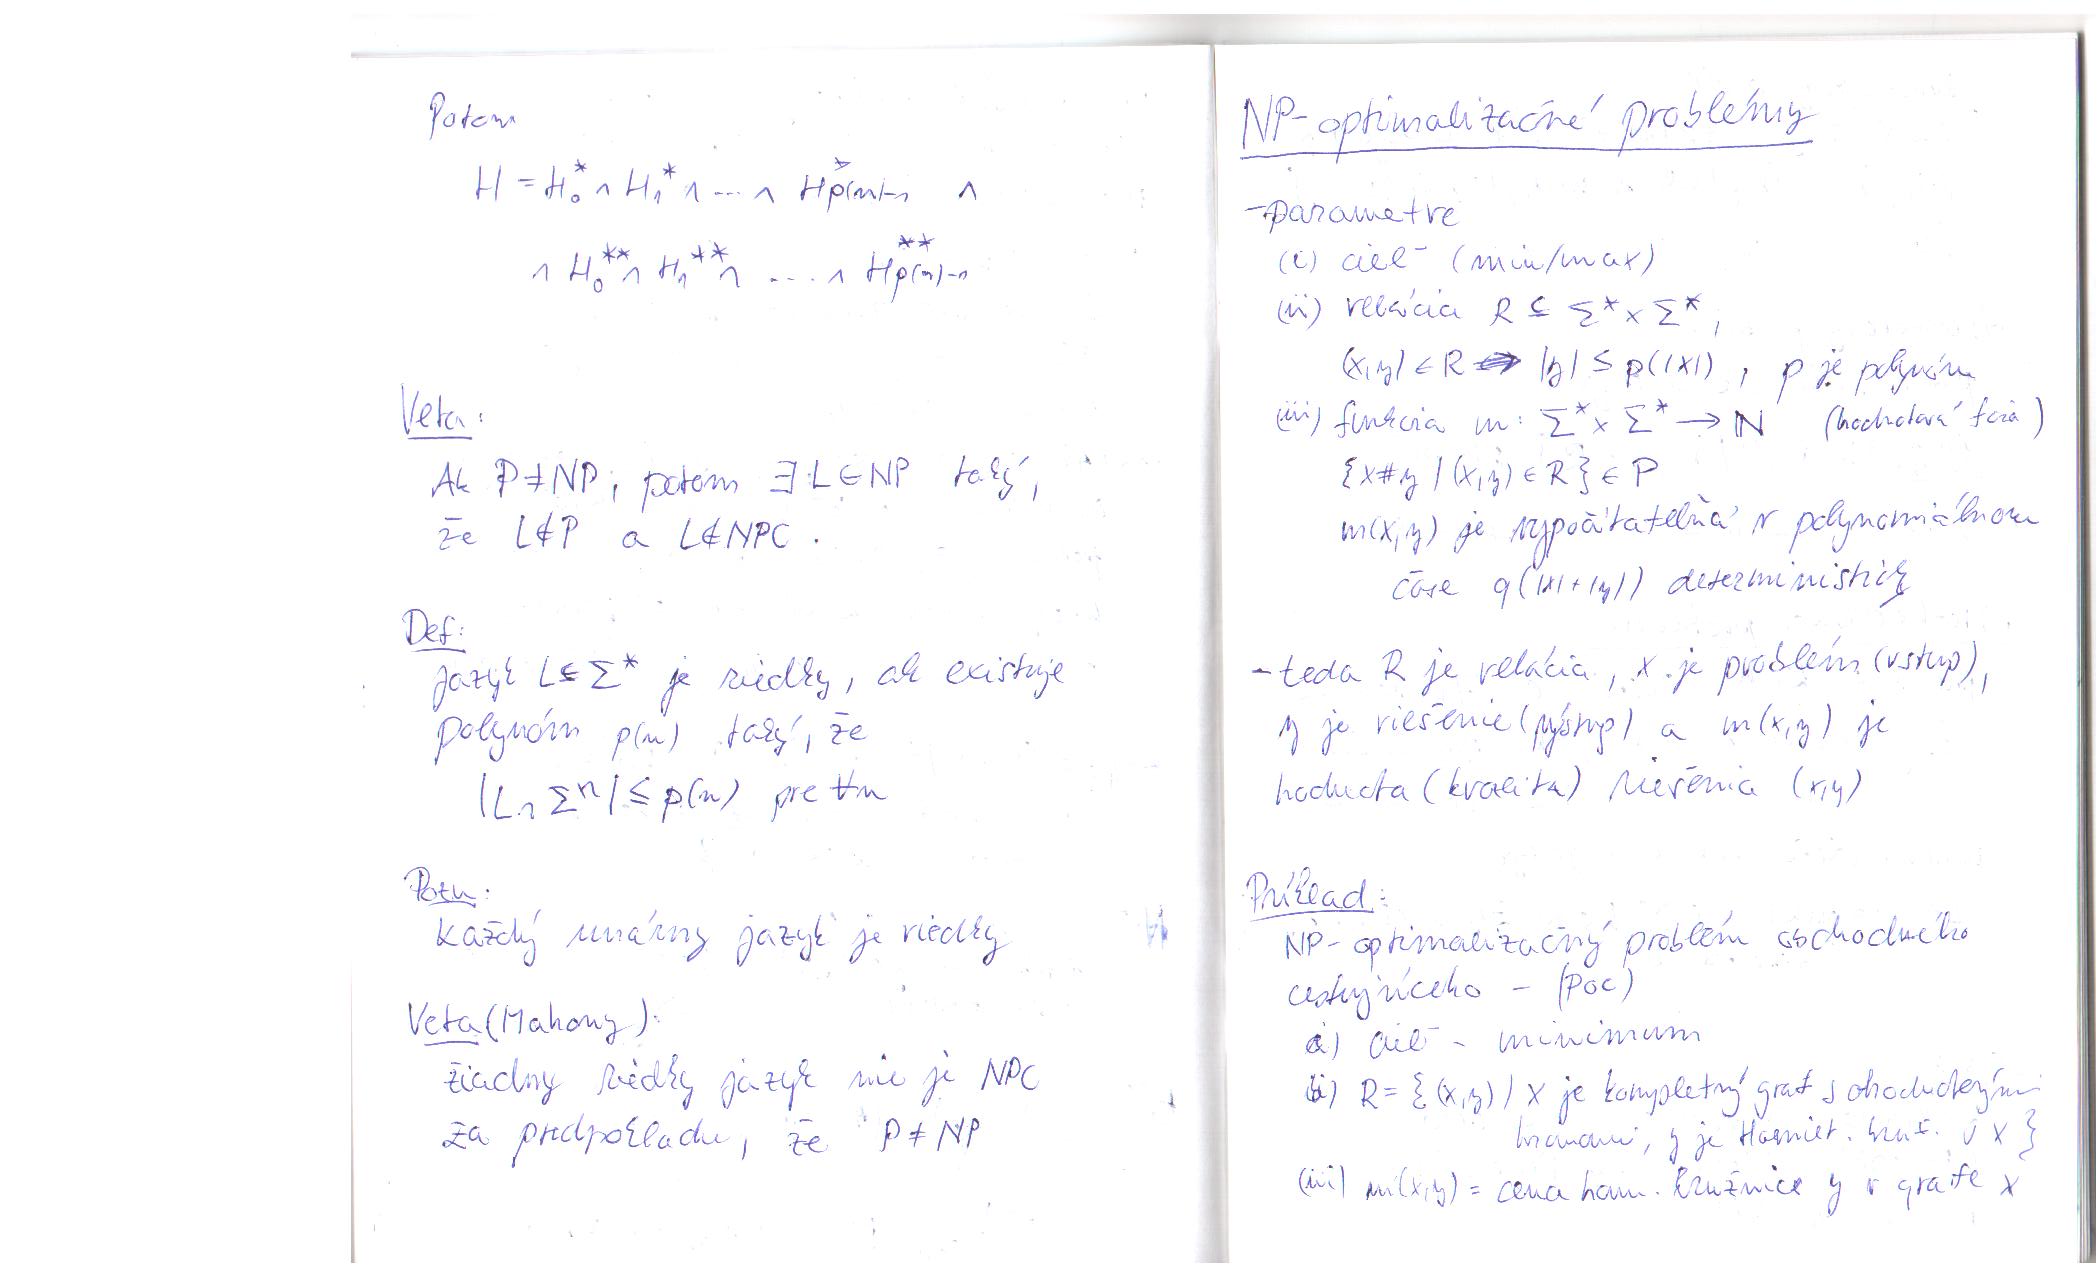 Potom
H = H₀* ∧ H₁* ∧ ... ∧ H*p(n)-1 ∧
∧ H₀** ∧ H₁** ∧ .... ∧ H**p(n)-1
Veta:
Ak P≠NP, potom ∃ L∈NP taký,
že L∉P a L∉NPC.
Def:
Jazyk L⊆Σ* je riedky, ak existuje
polynóm p(n) taký, že
|L∩Σⁿ| ≤ p(n) pre ∀n
Pozn:
Každý unárny jazyk je riedky
Veta (Mahony):
Žiadny riedky jazyk nie je NPC
za predpokladu, že P≠NP
NP-optimalizačné problémy
-parametre
(i) cieľ (min/max)
(ii) relácia R ⊆ Σ* x Σ*,
(x,y)∈R ⇔ |y| ≤ p(|x|), p je polynóm
(iii) funkcia m: Σ* x Σ* → N (hodnotová fcia)
{x#y | (x,y)∈R} ∈ P
m(x,y) je vypočítateľná v polynomiálnom
čase q(|x|+|y|) deterministicky
-teda R je relácia, x je problém (vstup),
y je riešenie (výstup) a m(x,y) je
hodnota (kvalita) riešenia (x,y)
Príklad:
NP-optimalizačný problém obchodného
cestujúceho - (POC)
i) cieľ - minimum
ii) R = {(x,y) | x je kompletný graf s ohodnotenými
hranami, y je Hamilt. kruž. v x}
(iii) m(x,y) = cena ham. kružnice y v grafe x